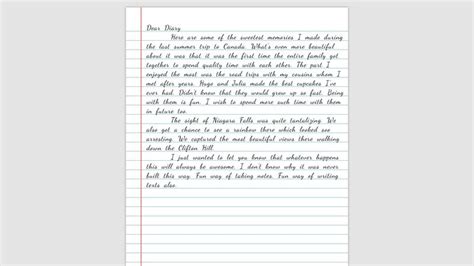 Dear Diary
Here are some of the sweetest memories I made during
the last summer trip to Canada. What's even more beautiful
about it was that it was the first time the entire family got
together to spend quality time with each other. The part I
enjoyed the most was the road trips with my cousins whom I
met after years. Hugo and Julia made the best cupcakes I've
ever had. Didn't know that they would grow up so fast. Being
with them is fun. I wish to spend more such time with them in
future too.
The sight of Niagara Falls was quite tantalizing. We
also got a chance to see a rainbow there which looked soo
arresting. We captured the most beautiful views there walking
down the Clifton Hill.
I just wanted to let you know that whatever happens
this will always be awesome. I don't know why it was never
built this way. Fun way of taking notes. Fun way of writing
texts also.